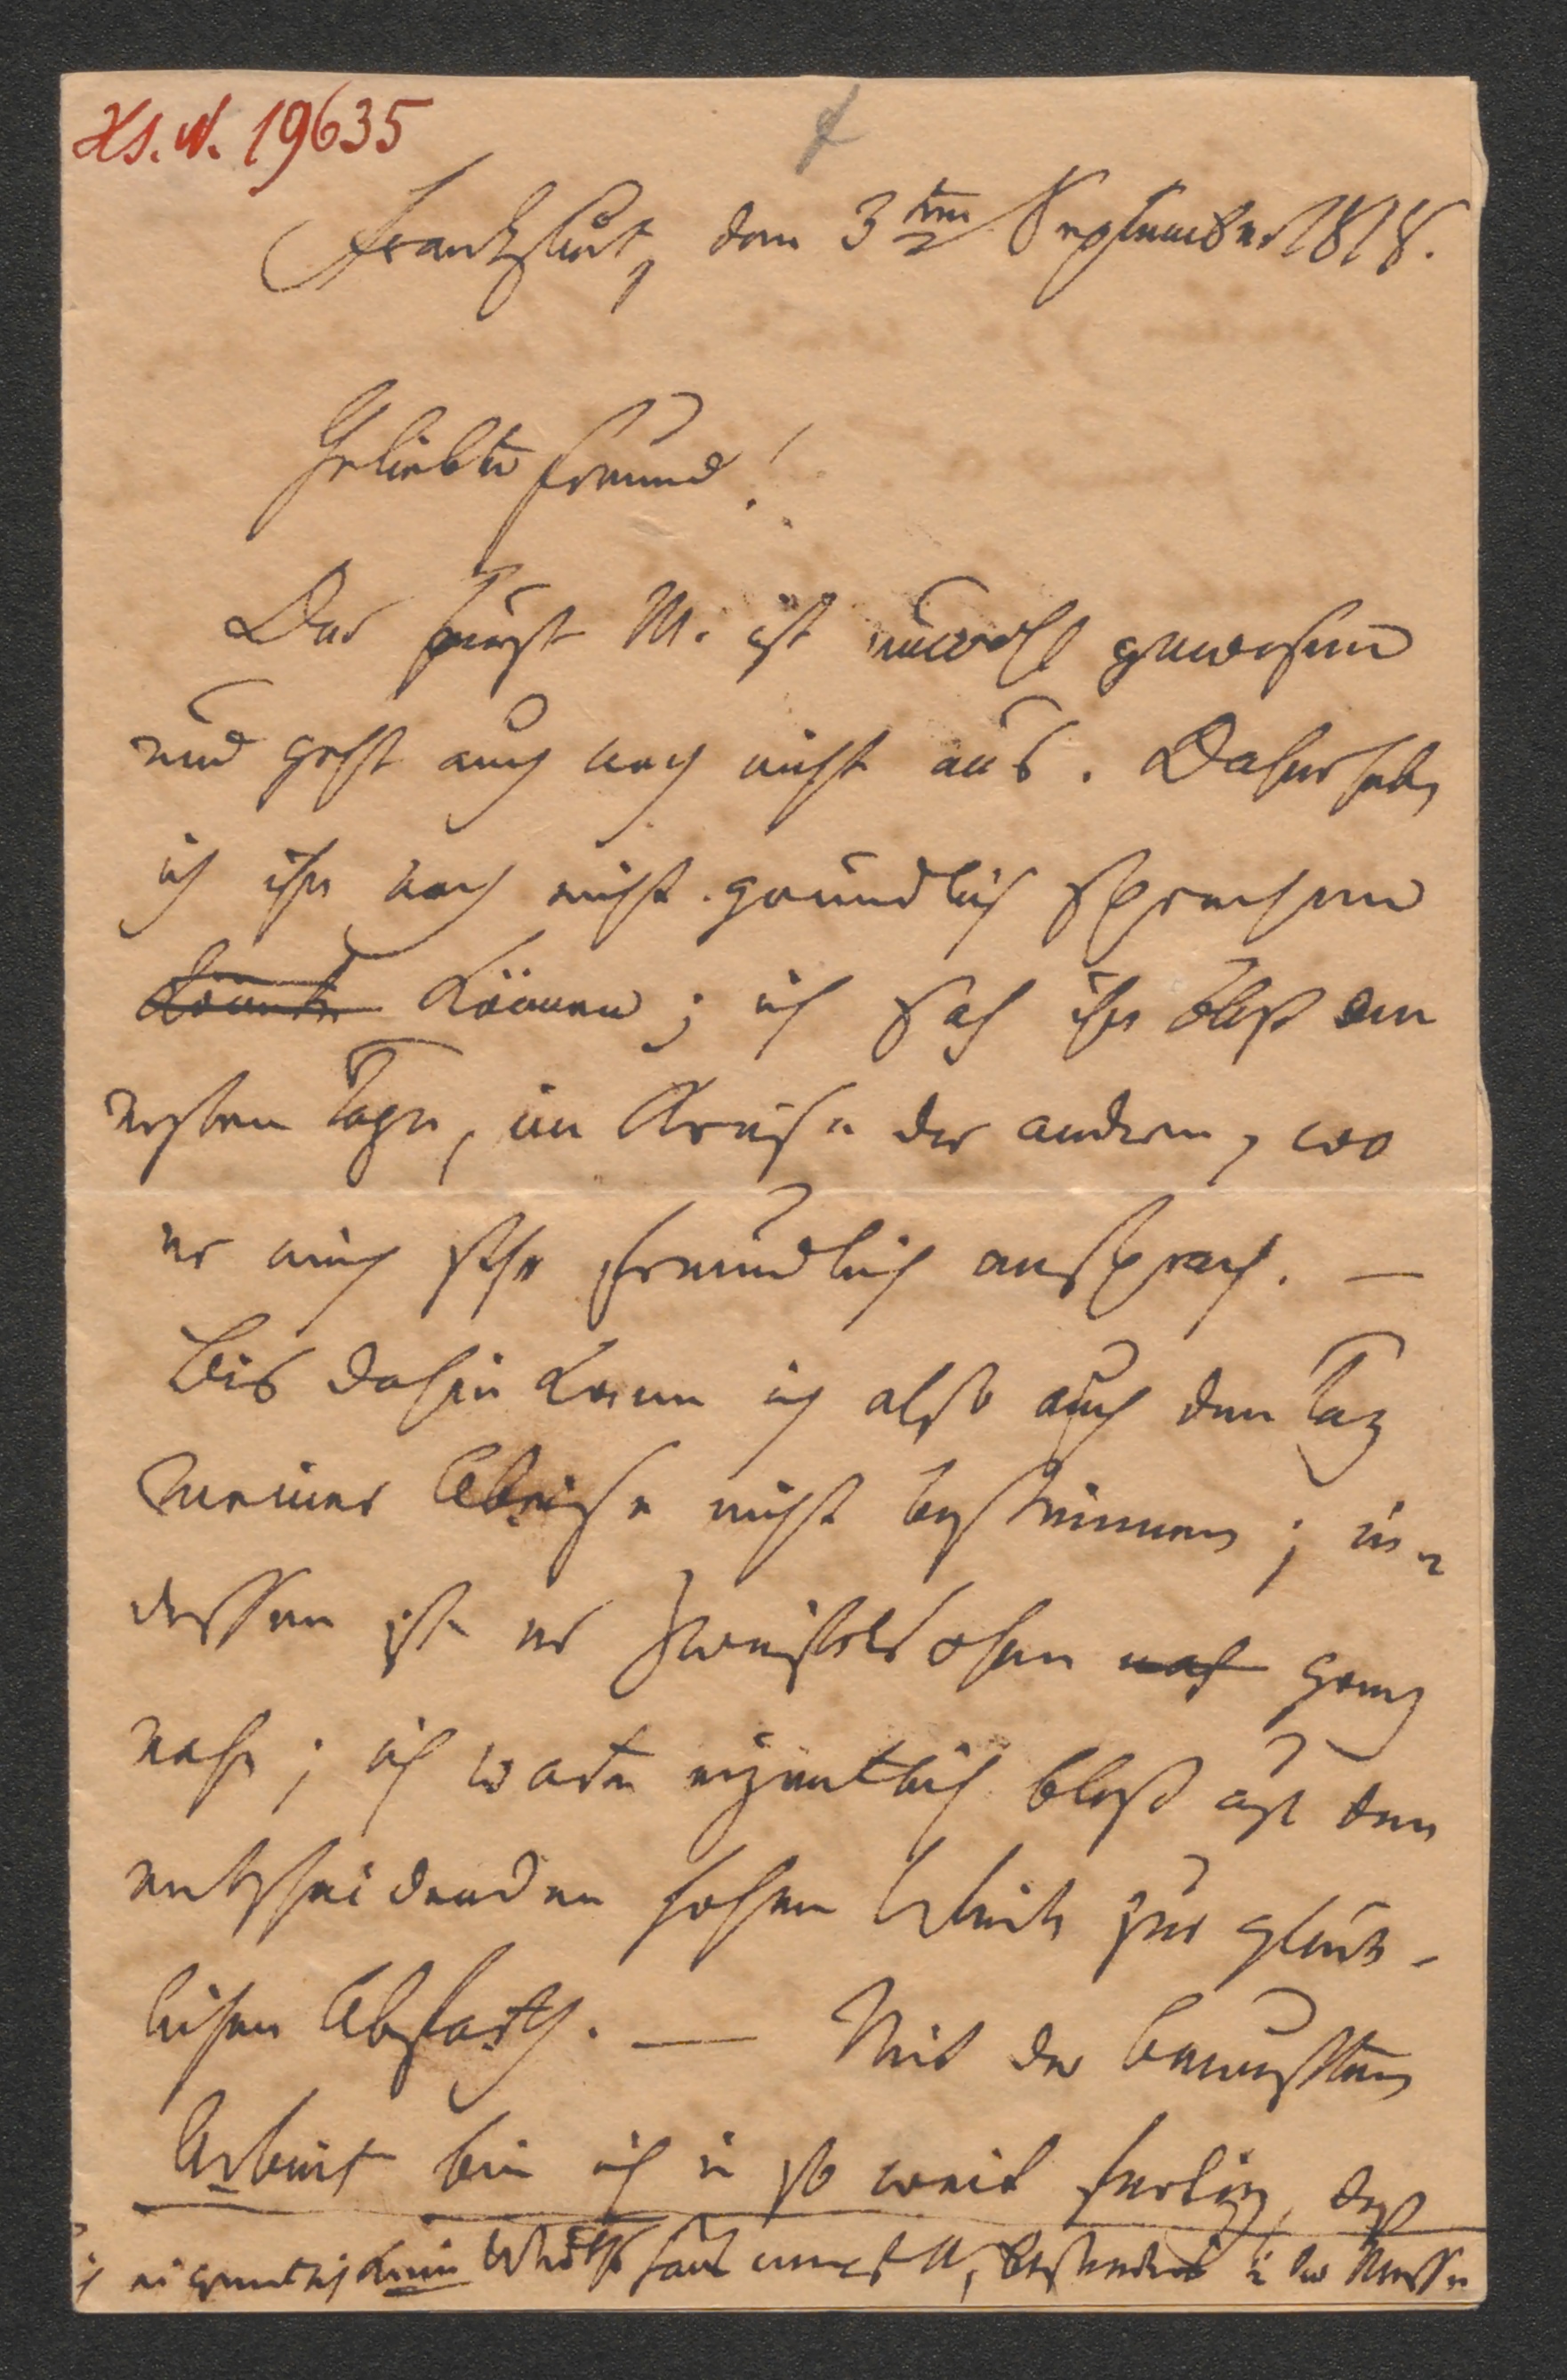 Hs. N. 19635
Frankfurt, den 3ten September 1818.
Geliebter Freund!
Der Fürst M. ist unwohl gewesen
und geht auch noch nicht aus. Daher habe
ich ihn noch nicht gründlich sprechen
könnte können; ich sah ihn bloß am
ersten Tage, im Kreise der andern, wo
er mich sehr freundlich ansprach. —
Bis dahin kann ich also auch den Tag
meiner Abreise nicht bestimmen; in-
dessen ist er zweifelsohne noch ganz
nahe; ich warte eigentlich bloß auf den
entscheidenden hohen Wink zur glück-
lichen Abfarth. — Mit der bewußten
Arbeit bin ich in so weit fertig, daß
eigentlich kein in der Messe